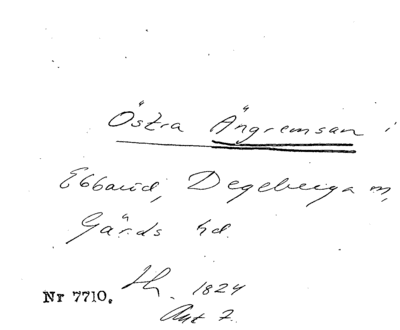 Östra Ängremsan i
Ebbarid, Degeberga sn,
Gärds hd.
Nr 7710. Th. 1824
Akt 7.